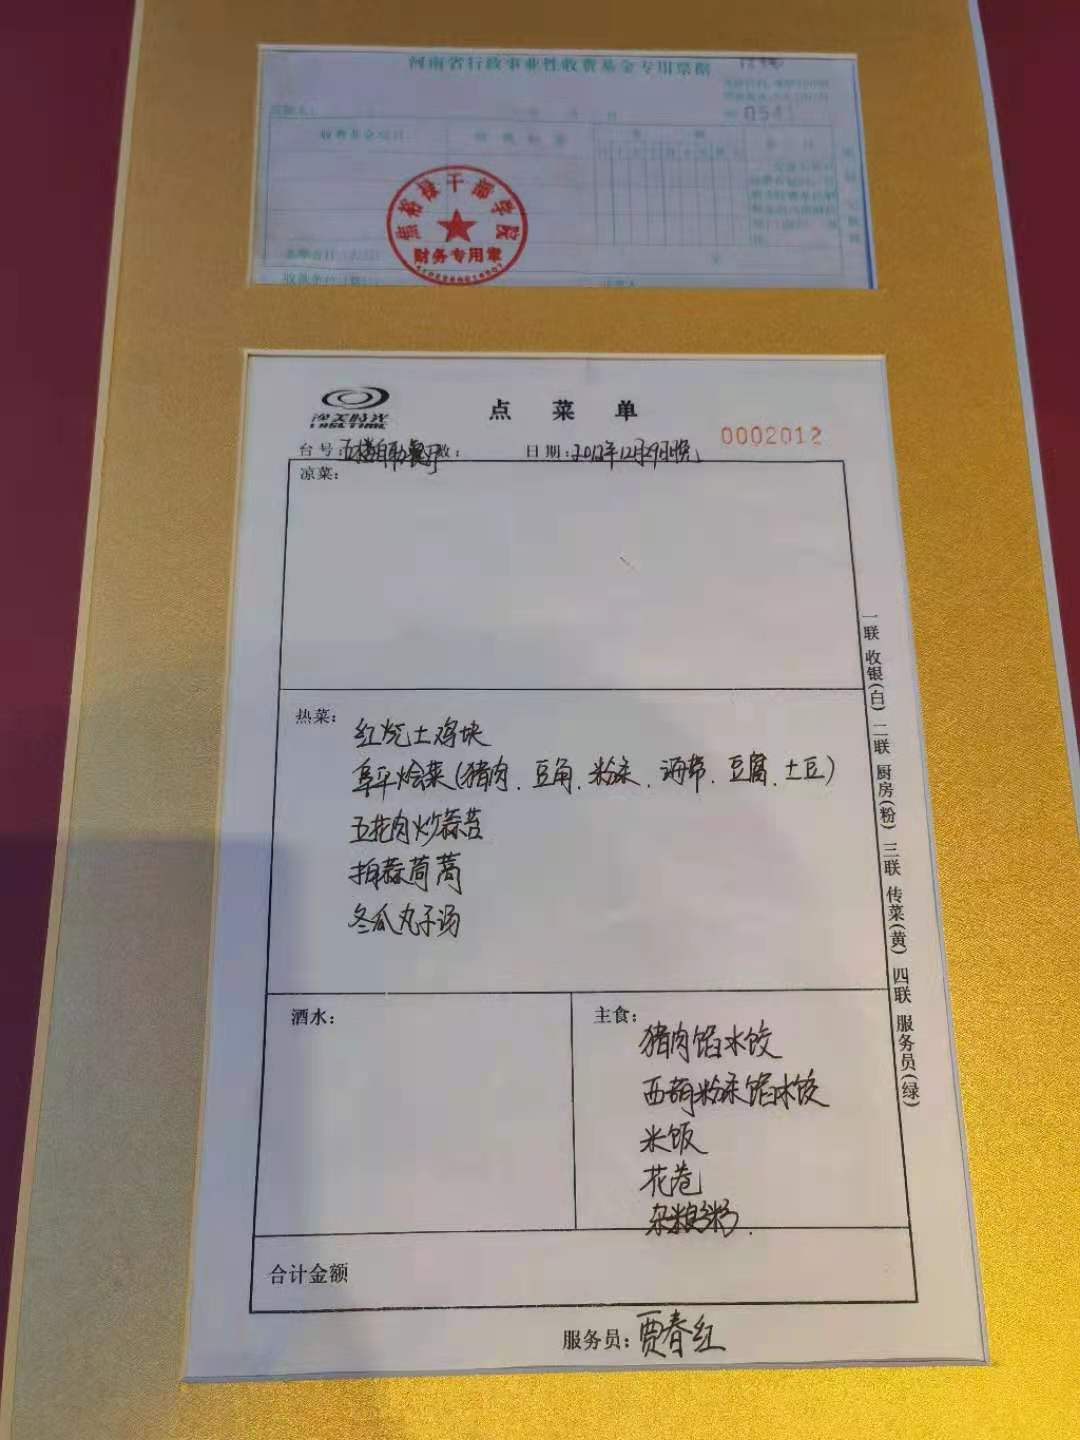 河南省行政事业性收费基金专用票据
0541
收费基金项目
焦裕禄干部学院
财务专用章
点菜单
0002012
台号:五楼自助餐厅 数:
日期:2012年12月29日晚
凉菜:
热菜:
红烧土鸡块
阜平烩菜(猪肉、豆角、粉条、海带、豆腐、土豆)
五花肉炒蒜苔
拍蒜茼蒿
冬瓜丸子汤
酒水:
主食:
猪肉馅水饺
西葫粉条馅水饺
米饭
花卷
杂粮粥
合计金额
服务员:贾春红
一联 收银(白) 二联 厨房(粉) 三联 传菜(黄) 四联 服务员(绿)